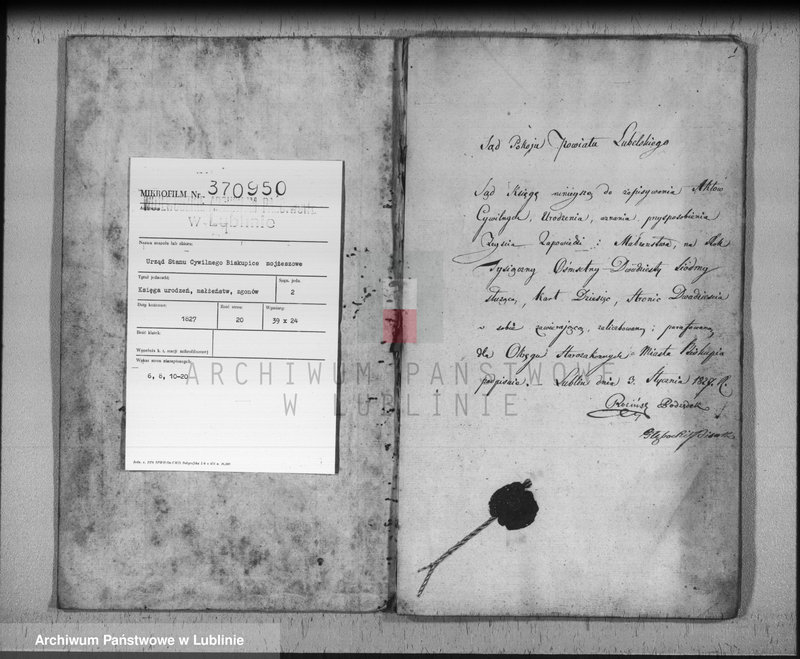 MIKROFILM Nr. 370950
WOJEWÓDZKIE ARCHIWUM PAŃSTWOWE
w Lublinie
Nazwa zespołu lub zbioru:
Urząd Stanu Cywilnego Biskupice mojżeszowe
Tytuł jednostki:
Sygn. jedn.
Księga urodzeń, małżeństw, zgonów
2
Daty krańcowe:
Ilość stron:
Wymiary:
1827
20
39 x 24
Ilość klatek:
6, 8, 10-20
1
Sąd Pokoju Powiatu Lubelskiego
Sąd Księgę niniejszą do zapisywania Aktów
Cywilnych, Urodzenia, uznania, przysposobienia
Zapowiedzi i Małżeństwa, na Rok
Tysiączny Ośmsetny Dwudziesty Siódmy
służącą, kart Dziesięć, Stronic Dwadzieścia
w sobie zawierającą, zaliczbowaną i parafowaną
dla Okręgu Starozakonnych Miasta Biskupic
podpisuie. Lublin dnia 3. Stycznia 1827. R.
Podsędek
Pisarz
ARCHIWUM PAŃSTWOWE
W LUBLINIE
Archiwum Państwowe w Lublinie